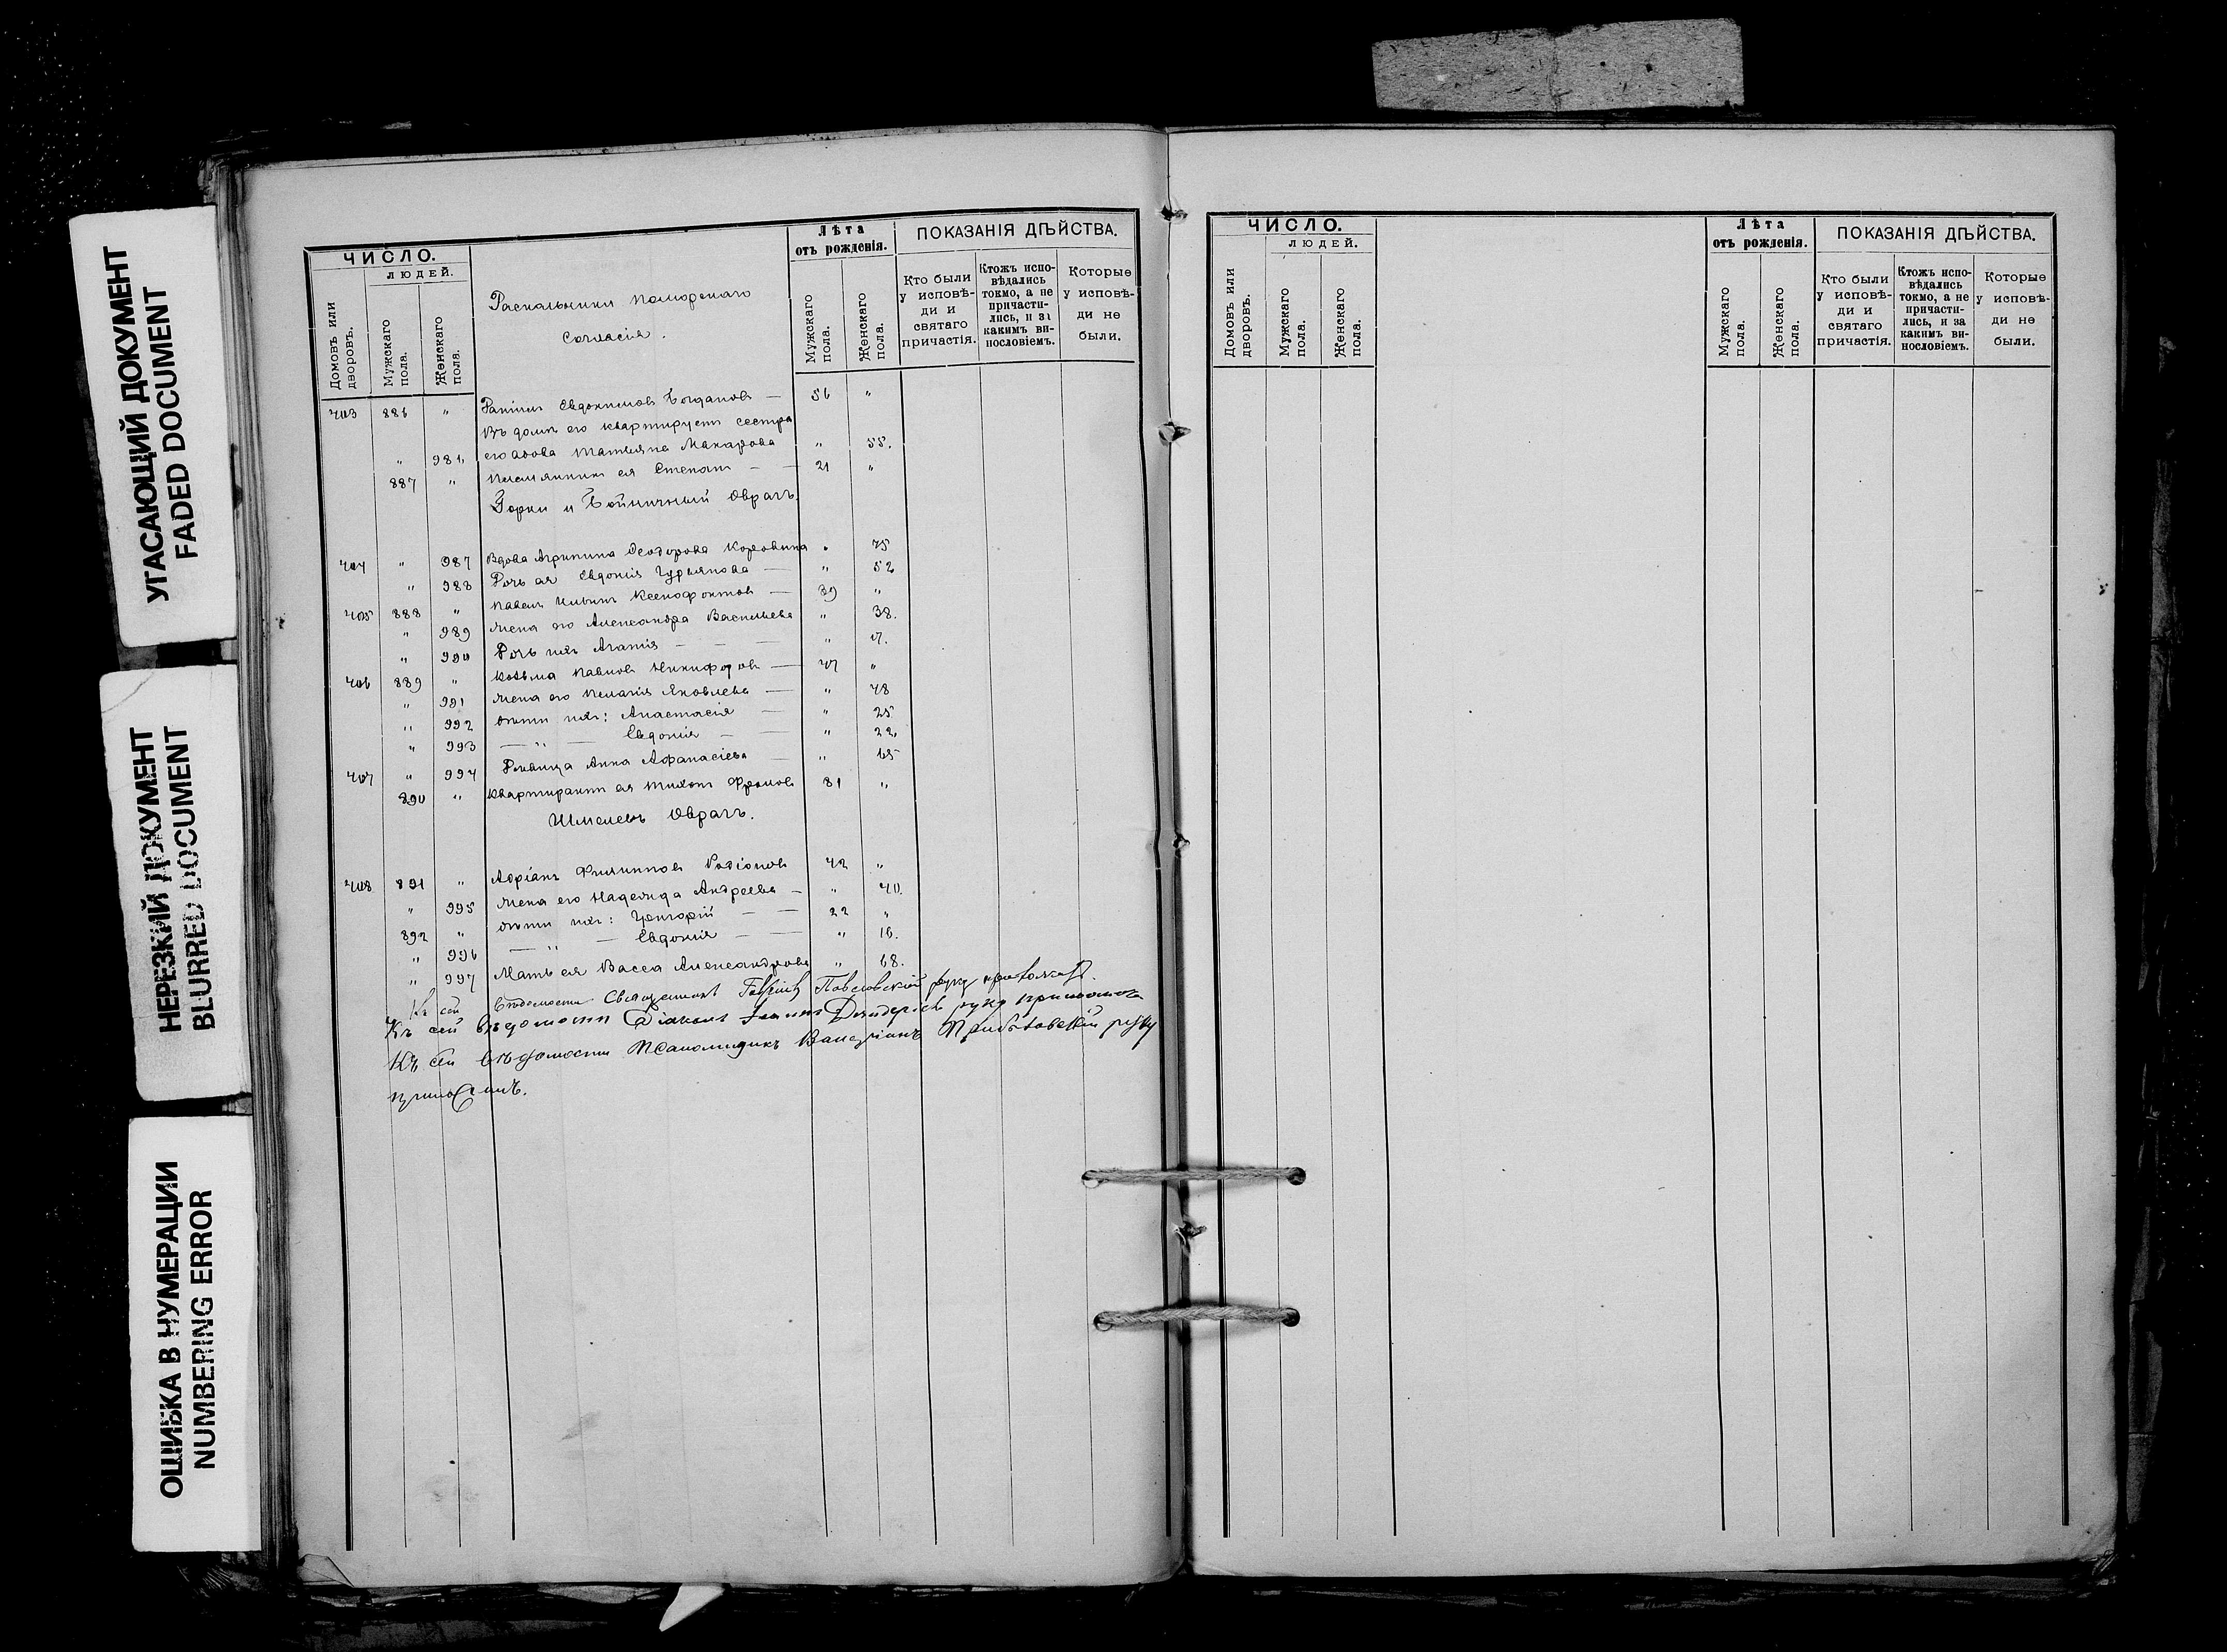 УГАСАЮЩИЙ ДОКУМЕНТ
FADED DOCUMENT
НЕРЕЗКИЙ ДОКУМЕНТ
BLURRED DOCUMENT
ОШИБКА В НУМЕРАЦИИ
NUMBERING ERROR
ЧИСЛО.
ЛЮДЕЙ.
Домовъ или дворовъ.
Мужскаго пола.
Женскаго пола.
Раскольники Поморскаго
согласія.
Лѣта
отъ рожденія.
Мужскаго пола.
Женскаго пола.
ПОКАЗАНІЯ ДѢЙСТВА.
Кто были у исповѣди и святаго причастія.
Ктожъ исповѣдались токмо, а не причастились, и за какимъ винословіемъ.
Которые у исповѣди не были.
403 886 " Евдокимовъ Богдановъ — 56 "
Въ домѣ его квартируетъ сестра
" 986 его вдова Татьяна Макарова " 55.
887 " Племянникъ ея Степанъ — — 21 "
Горки и Бойничный Оврагъ.
404 " 987 Вдова Агрипина Ѳеодорова " 75
" 988 Дочь ея Евдокія Гурьянова — " 52
405 888 " Павелъ Ильинъ Ксенофонтовъ — 39 "
" 989 Жена его Александра Васильева " 38.
" 990 Дочь ихъ Агапія — — "
406 889 " Козьма Павловъ Никифоровъ — 47 "
" 991 Жена его Пелагія Яковлева — " 48
" 992 Дѣти ихъ: Анастасія — " 25
" 993 — " — Евдокія — — " 22.
407 " 994 Дѣвица Анна Аѳанасіева — " 65
890 " Квартирантъ ея Тихонъ 81 "
Шмелевъ Оврагъ.
408 891 " Адріанъ Филипповъ Родіоновъ 42 "
" 995 Жена его Надежда Андреева — " 40.
892 " Дѣти ихъ: Григорій — — 22 "
" 996 — " — Евдокія — — " 16.
" 997 Мать ея Васса Александрова " 68.
Къ сей вѣдомости Священникъ Павловскій руку приложилъ.
Къ сей вѣдомости Діаконъ руку приложилъ
Къ сей вѣдомости Псаломщикъ Валеріанъ руку
приложилъ.
ЧИСЛО.
ЛЮДЕЙ.
Домовъ или дворовъ.
Мужскаго пола.
Женскаго пола.
Лѣта
отъ рожденія.
Мужскаго пола.
Женскаго пола.
ПОКАЗАНІЯ ДѢЙСТВА.
Кто были у исповѣди и святаго причастія.
Ктожъ исповѣдались токмо, а не причастились, и за какимъ винословіемъ.
Которые у исповѣди не были.